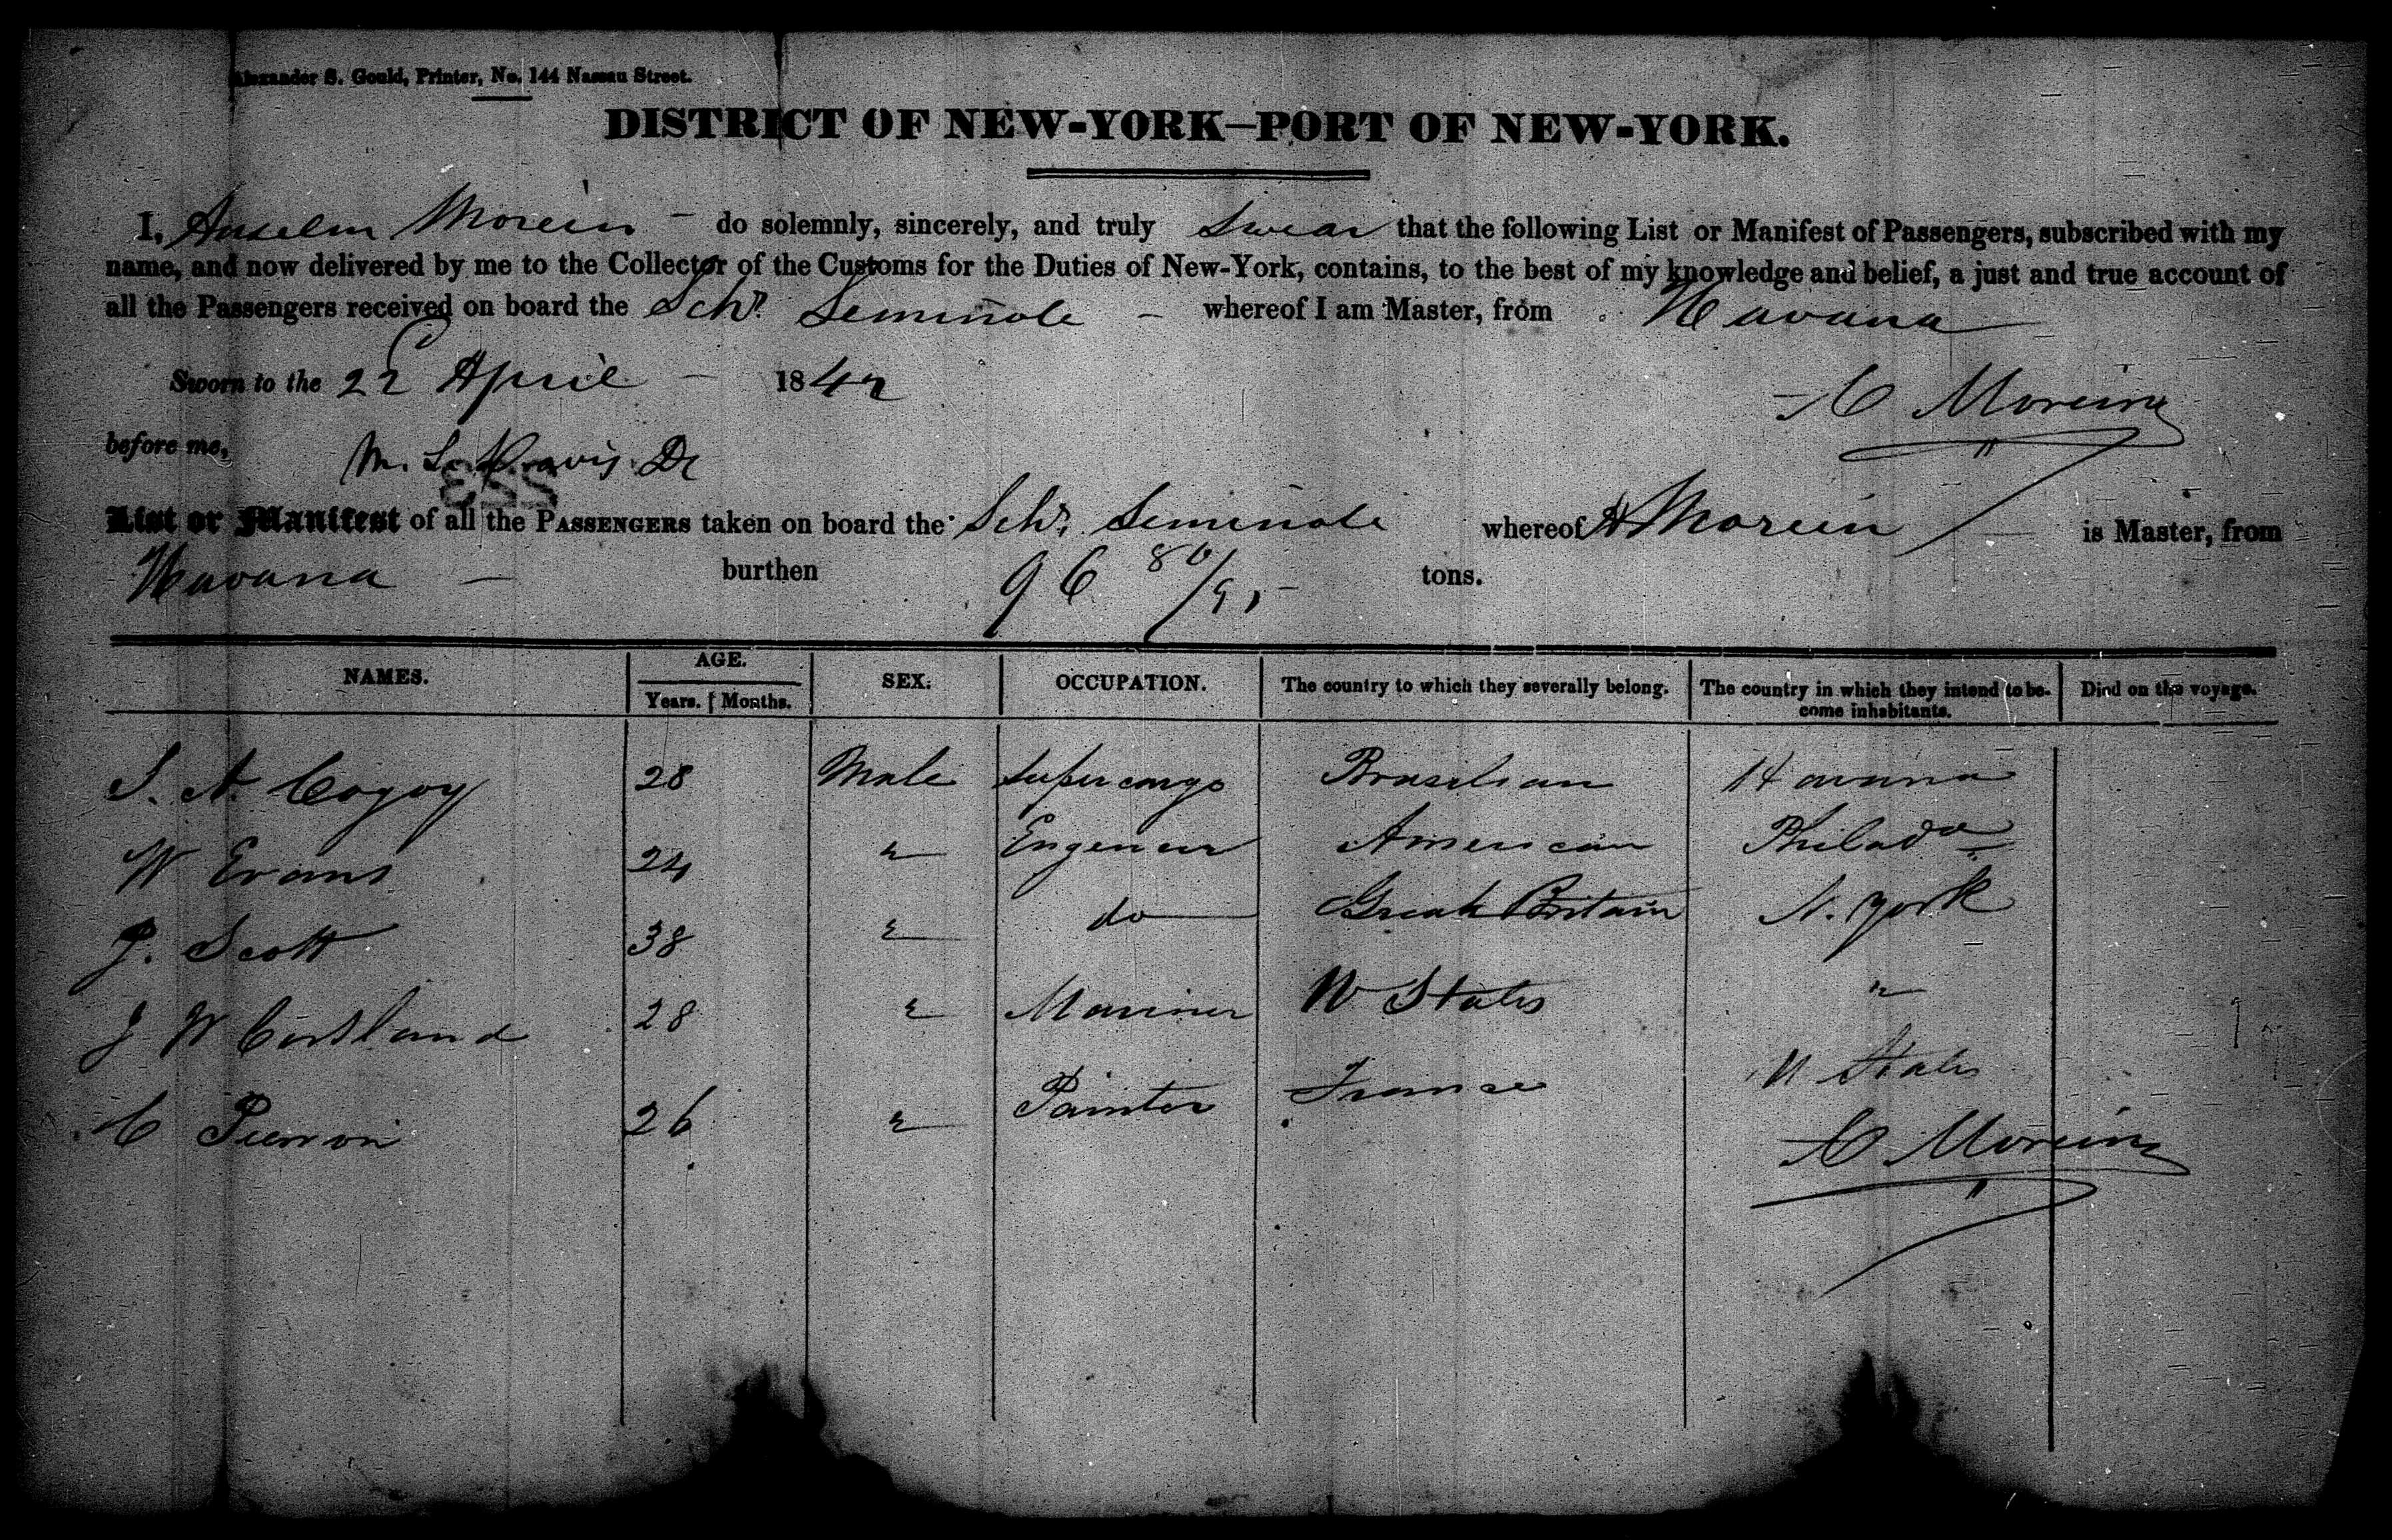 Alexander S. Gould, Printer, No. 144 Nassau Street.
DISTRICT OF NEW-YORK—PORT OF NEW-YORK.
I, Anselm Morein - do solemnly, sincerely, and truly Swear that the following List or Manifest of Passengers, subscribed with my
name, and now delivered by me to the Collector of the Customs for the Duties of New-York, contains, to the best of my knowledge and belief, a just and true account of
all the Passengers received on board the Schr. Seminole - whereof I am Master, from Havana
Sworn to the 22 April - 1842
A Morein
before me,
List or Manifest of all the PASSENGERS taken on board the Schr. Seminole whereof A Morein is Master, from
Havana - burthen 96 80/95 tons.
NAMES. AGE. SEX. OCCUPATION. The country to which they severally belong. The country in which they intend to be- Died on the voyage.
Years. Months. come inhabitants.
28 Male Supercargo Brasilian Havana
W Evans 24 " Engeneer American Philada
J. Scott 38 " do Great Britain N. york
J W Cortland 28 " Mariner U States "
C 26 " Painter France U States
A Morein